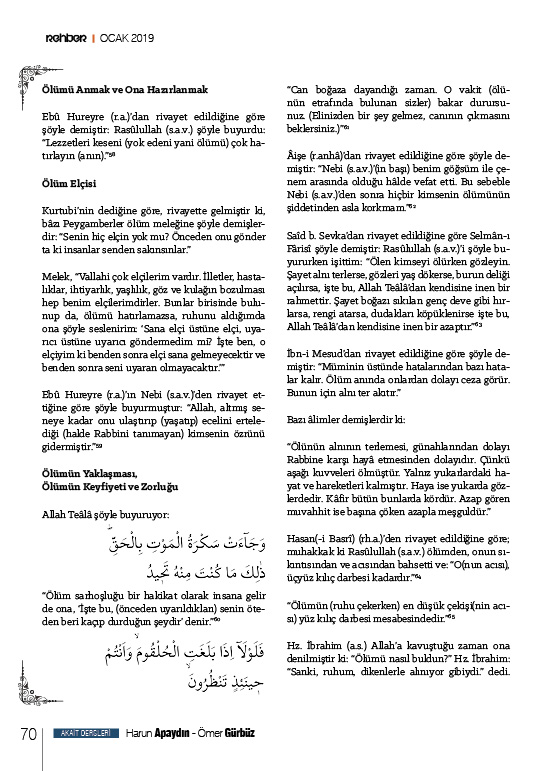 rehber | OCAK 2019
Ölümü Anmak ve Ona Hazırlanmak
Ebû Hureyre (r.a.)'dan rivayet edildiğine göre
şöyle demiştir: Rasûlullah (s.a.v.) şöyle buyurdu:
“Lezzetleri keseni (yok edeni yani ölümü) çok ha-
tırlayın (anın).”⁵⁸
Ölüm Elçisi
Kurtubi'nin dediğine göre, rivayette gelmiştir ki,
bâzı Peygamberler ölüm meleğine şöyle demişler-
dir: “Senin hiç elçin yok mu? Önceden onu gönder
ta ki insanlar senden sakınsınlar.”
Melek, “Vallahi çok elçilerim vardır. İlletler, hasta-
lıklar, ihtiyarlık, yaşlılık, göz ve kulağın bozulması
hep benim elçilerimdirler. Bunlar birisinde bulu-
nup da, ölümü hatırlamazsa, ruhunu aldığımda
ona şöyle seslenirim: ‘Sana elçi üstüne elçi, uya-
rıcı üstüne uyarıcı göndermedim mi? İşte ben, o
elçiyim ki benden sonra elçi sana gelmeyecektir ve
benden sonra seni uyaran olmayacaktır.’”
Ebû Hureyre (r.a.)'ın Nebi (s.a.v.)'den rivayet et-
tiğine göre şöyle buyurmuştur: “Allah, altmış se-
neye kadar onu ulaştırıp (yaşatıp) ecelini ertele-
diği (halde Rabbini tanımayan) kimsenin özrünü
gidermiştir.”⁵⁹
Ölümün Yaklaşması,
Ölümün Keyfiyeti ve Zorluğu
Allah Teâlâ şöyle buyuruyor:
وَجَٓاءَتْ سَكْرَةُ الْمَوْتِ بِالْحَقِّۜ
ذٰلِكَ مَا كُنْتَ مِنْهُ تَحٖيدُ
“Ölüm sarhoşluğu bir hakikat olarak insana gelir
de ona, ‘İşte bu, (önceden uyarıldıkları) senin öte-
den beri kaçıp durduğun şeydir’ denir.”⁶⁰
فَلَوْلَٓا اِذَا بَلَغَتِ الْحُلْقُومَۙ وَاَنْتُمْ
حٖينَئِذٍ تَنْظُرُونَۙ
“Can boğaza dayandığı zaman. O vakit (ölü-
nün etrafında bulunan sizler) bakar durursu-
nuz. (Elinizden bir şey gelmez, canının çıkmasını
beklersiniz.)”⁶¹
Âişe (r.anhâ)'dan rivayet edildiğine göre şöyle de-
miştir: “Nebi (s.a.v.)'(in başı) benim göğsüm ile çe-
nem arasında olduğu hâlde vefat etti. Bu sebeble
Nebi (s.a.v.)'den sonra hiçbir kimsenin ölümünün
şiddetinden asla korkmam.”⁶²
Saîd b. Sevka'dan rivayet edildiğine göre Selmân-ı
Fârisî şöyle demiştir: Rasûlullah (s.a.v.)'i şöyle bu-
yururken işittim: “Ölen kimseyi ölürken gözleyin.
Şayet alnı terlerse, gözleri yaş dökerse, burun deliği
açılırsa, işte bu, Allah Teâlâ'dan kendisine inen bir
rahmettir. Şayet boğazı sıkılan genç deve gibi hır-
larsa, rengi atarsa, dudakları köpüklenirse işte bu,
Allah Teâlâ'dan kendisine inen bir azaptır.”⁶³
İbn-i Mesud'dan rivayet edildiğine göre şöyle de-
miştir: “Müminin üstünde hatalarından bazı hata-
lar kalır. Ölüm anında onlardan dolayı ceza görür.
Bunun için alnı ter akıtır.”
Bazı âlimler demişlerdir ki:
“Ölünün alnının terlemesi, günahlarından dolayı
Rabbine karşı hayâ etmesinden dolayıdır. Çünkü
aşağı kuvveleri ölmüştür. Yalnız yukarlardaki ha-
yat ve hareketleri kalmıştır. Haya ise yukarda göz-
lerdedir. Kâfir bütün bunlarda kördür. Azap gören
muvahhit ise başına çöken azapla meşguldür.”
Hasan(-i Basrî) (rh.a.)'den rivayet edildiğine göre;
muhakkak ki Rasûlullah (s.a.v.) ölümden, onun sı-
kıntısından ve acısından bahsetti ve: “O(nun acısı),
üçyüz kılıç darbesi kadardır.”⁶⁴
“Ölümün (ruhu çekerken) en düşük çekişi(nin acı-
sı) yüz kılıç darbesi mesabesindedir.”⁶⁵
Hz. İbrahim (a.s.) Allah'a kavuştuğu zaman ona
denilmiştir ki: “Ölümü nasıl buldun?” Hz. İbrahim:
“Sanki, ruhum, dikenlerle alınıyor gibiydi.” dedi.
70 AKAİT DERSLERİ Harun Apaydın - Ömer Gürbüz